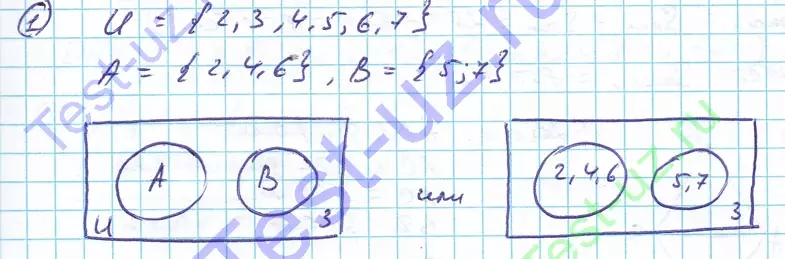 ① U = {2, 3, 4, 5, 6, 7}
A = {2, 4, 6}, B = {5; 7}
A B или 2, 4, 6 5, 7
U 3 3
Test-uz.ru
Test-uz.ru
Test-uz.ru